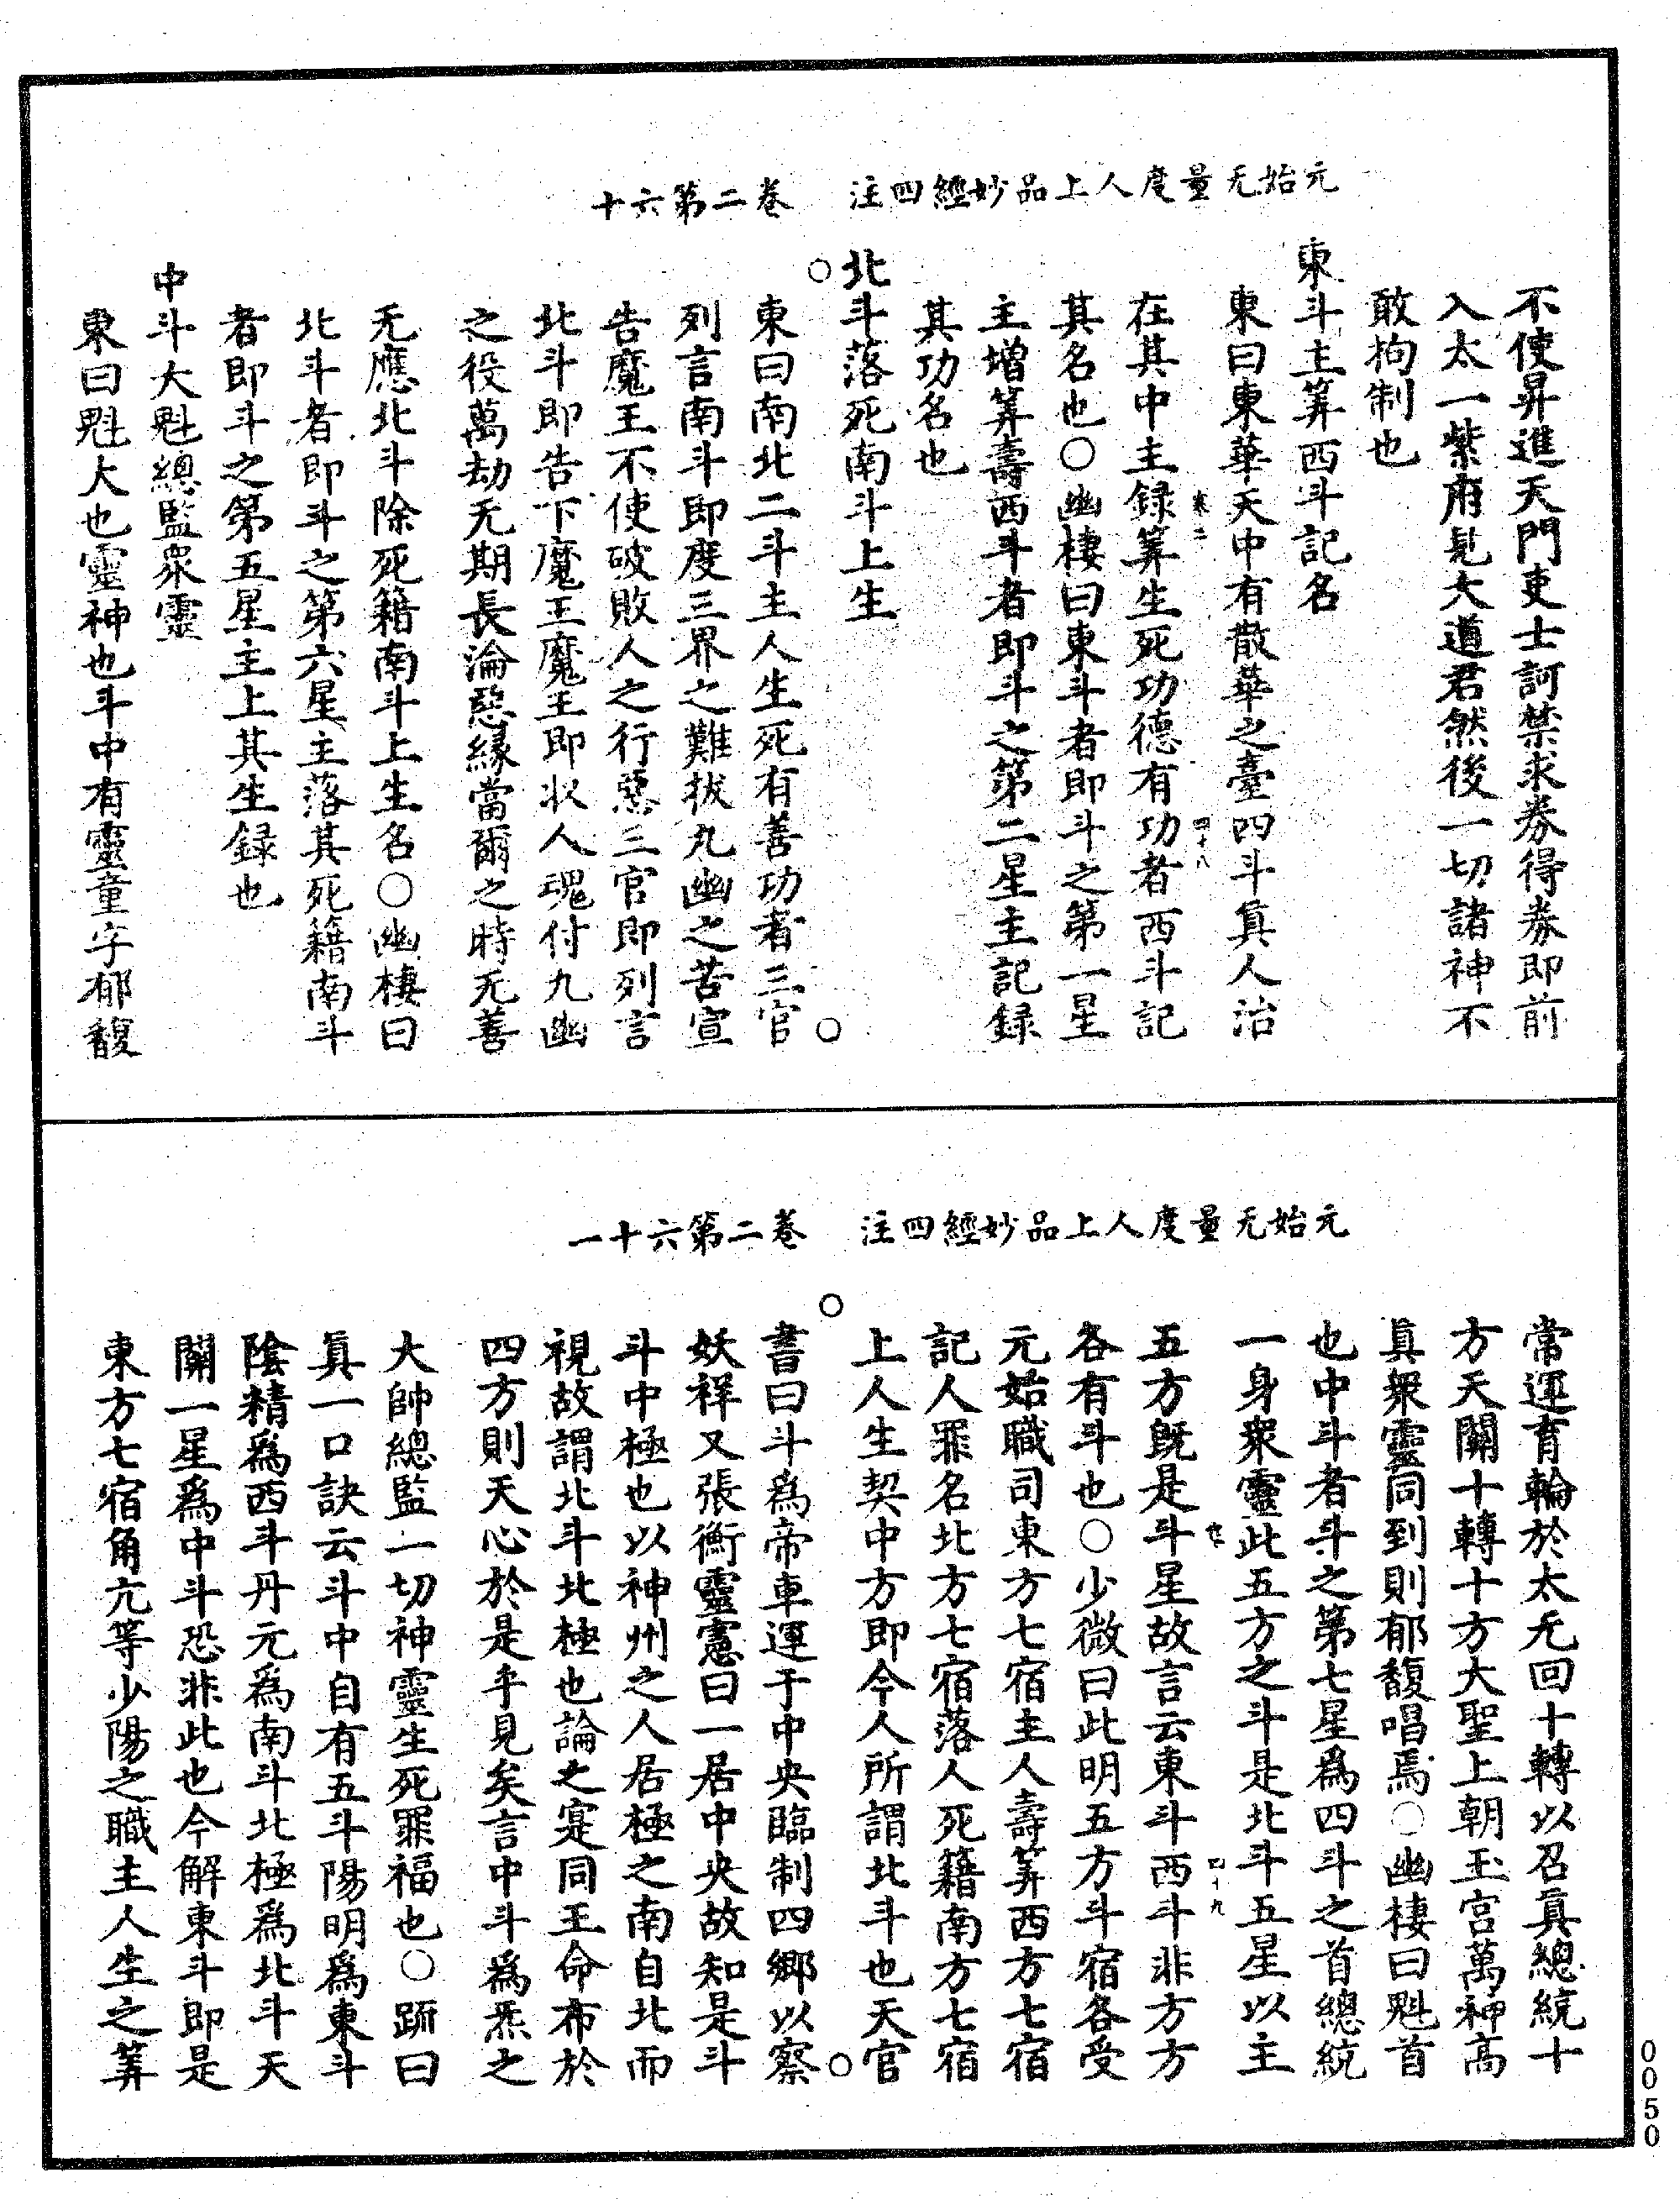 元始无量度人上品妙經四注　卷二第六十
不使昇進天門吏士訶禁求券得券即前
入太一紫府見大道君然後一切諸神不
敢拘制也
東斗主筭西斗記名
東曰東華天中有散華之臺四斗眞人治
卷二　四十八
在其中主録筭生死功德有功者西斗記
其名也○幽棲曰東斗者即斗之第一星
主增筭壽西斗者即斗之第二星主記録
其功名也
北斗落死南斗上生
東曰南北二斗主人生死有善功者三官
列言南斗即度三界之難拔九幽之苦宣
告魔王不使破敗人之行惡三官即列言
北斗即告下魔王魔王即收人魂付九幽
之役萬劫无期長淪惡緣當爾之時无善
无應北斗除死籍南斗上生名○幽棲曰
北斗者即斗之第六星主落其死籍南斗
者即斗之第五星主上其生録也
中斗大魁總監衆靈
東曰魁大也靈神也斗中有靈童字郁馥
元始无量度人上品妙經四注　卷二第六十一
常運育輪於太无回十轉以召眞總統十
方天關十轉十方大聖上朝玉宮萬神高
眞衆靈同到則郁馥唱焉○幽棲曰魁首
也中斗者斗之第七星爲四斗之首總統
一身衆靈此五方之斗是北斗五星以主
卷二　四十九
五方旣是斗星故言云東斗西斗非方方
各有斗也○少微曰此明五方斗宿各受
元始職司東方七宿主人壽筭西方七宿
記人罪名北方七宿落人死籍南方七宿
上人生契中方即今人所謂北斗也天官
書曰斗爲帝車運于中央臨制四鄉以察
妖祥又張衡靈憲曰一居中央故知是斗
斗中極也以神州之人居極之南自北而
視故謂北斗北極也論之寔同王命布於
四方則天心於是乎見矣言中斗爲炁之
大帥總監一切神靈生死罪福也○䟽曰
眞一口訣云斗中自有五斗陽明爲東斗
陰精爲西斗丹元爲南斗北極爲北斗天
關一星爲中斗恐非此也今解東斗即是
東方七宿角亢等少陽之職主人生之筭
0050